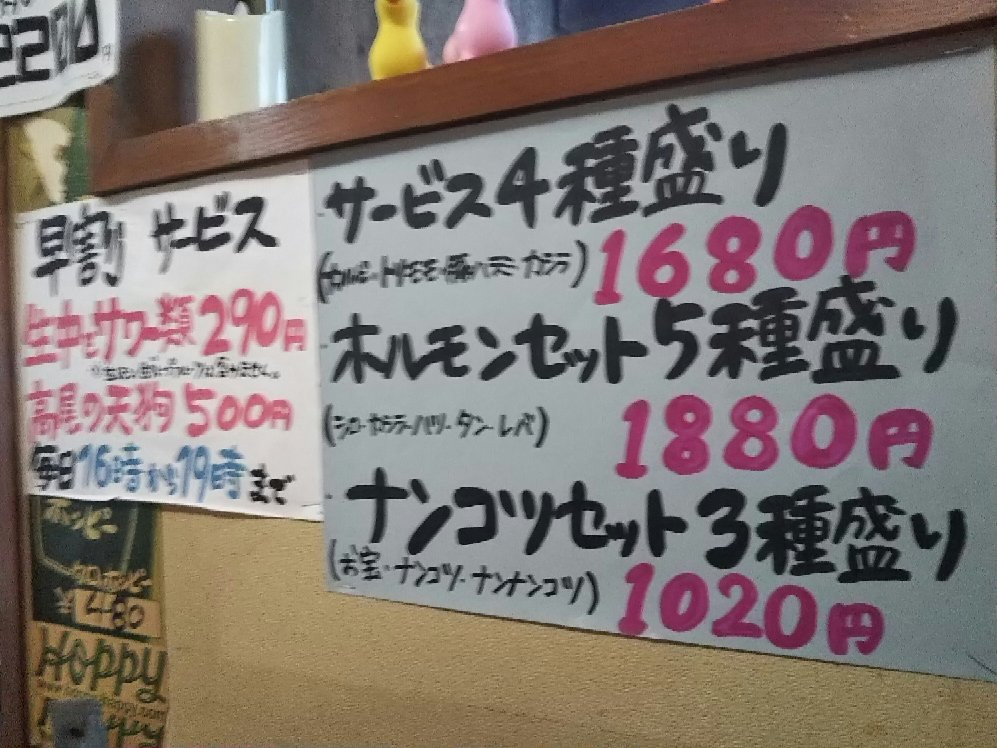 2200円
早割 サービス
生中とサワー類 290円
高尾の天狗 500円
毎日16時から19時まで
サービス4種盛り
(カルビー・トリモモ・豚ハラミ・カシラ)
1680円
ホルモンセット5種盛り
(シロ・カシラ・ハツ・タン・レバ)
1880円
ナンコツセット3種盛り
(お宝・ナンコツ・ナンナンコツ)
1020円
ホッピー
Hoppy